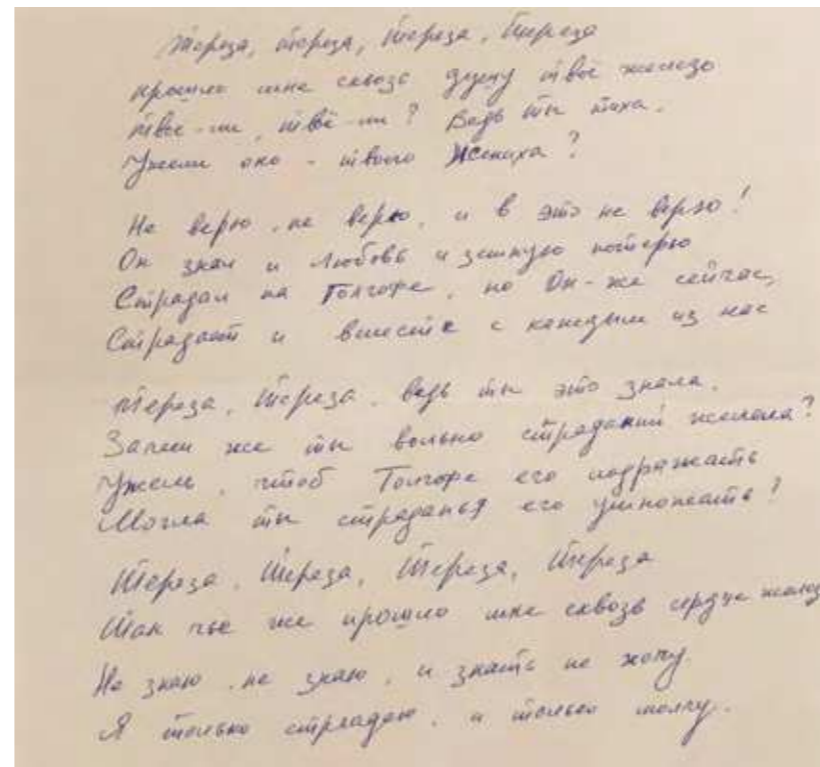 Тереза, Тереза, Тереза, Тереза
прошло мне сквозь душу твоё железо
твоё-ли, твоё-ли? Ведь ты тиха.
Ужели оно - твоего Жениха?
Не верю, не верю, и в это не верю!
Он знал и любовь и земную потерю
Страдал на Голгофе, но Он-же сейчас,
Страдает и вместе с каждым из нас
Тереза, Тереза, ведь ты это знала.
Зачем же ты вольно страданий желала?
Ужель, чтоб Голгофе его подражать
Могла ты страданья его умножать?
Тереза, Тереза, Тереза, Тереза
Так чьё же прошло мне сквозь сердце железо
Не знаю, не знаю, и знать не хочу.
Я только страдаю, и только молчу.